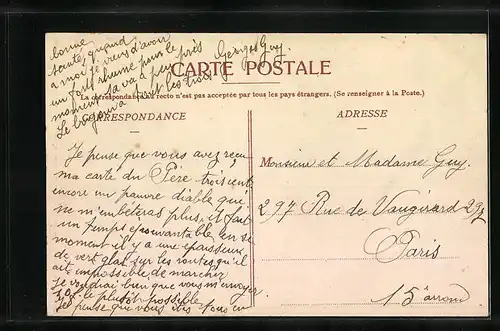 bonne
santé, quand
à moi, je viens d'avoir
un fort rhume pour le
moment sa va à peu près
Le bonjour à tous les trois Georges Guy.
CARTE POSTALE
La correspondance au recto n'est pas acceptée par tous les pays étrangers. (Se renseigner à la Poste.)
CORRESPONDANCE
ADRESSE
Je pense que vous avez reçu
ma carte du Père trois cent
encore un pauvre diable qui
ne m'embêteras plus, il fait
un temps épouvantable en ce
moment il y a une épaisseur
de vert glas sur les routes qu'il
ait impossible de marcher
je voudrai bien que vous m'envoyer
le plutôt possible
Je pense que vous êtes tous en
Monsieur et Madame Guy.
297 Rue de Vaugirard 297
Paris
15 arrom